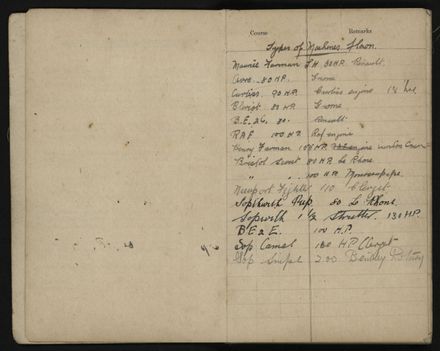 Course Remarks
Types of Machines Flown.
Maurice Farman S.H. 80 H.P. Renault.
Avro. 80 H.P. Gnome
Curtiss. 90 H.P. Curtiss engine
Bleriot 80 H.P. Gnome
B.E. 2c. 80. Renault.
RAF 100 H.P. Raf engine
Henry Farman H.P.
Bristol Scout 80 H.P. Le Rhone
" " 100 H.P. Monosoupape
Nieuport Fighter 110 Clerget.
Sopwith Pup 80 Le Rhone
Sopwith 1 1/2 Strutter. 130 H.P.
B E 2 E. 100 H.P.
Sop Camel H.P. Clerget
Sop Snipe 200 Bentley Rotary